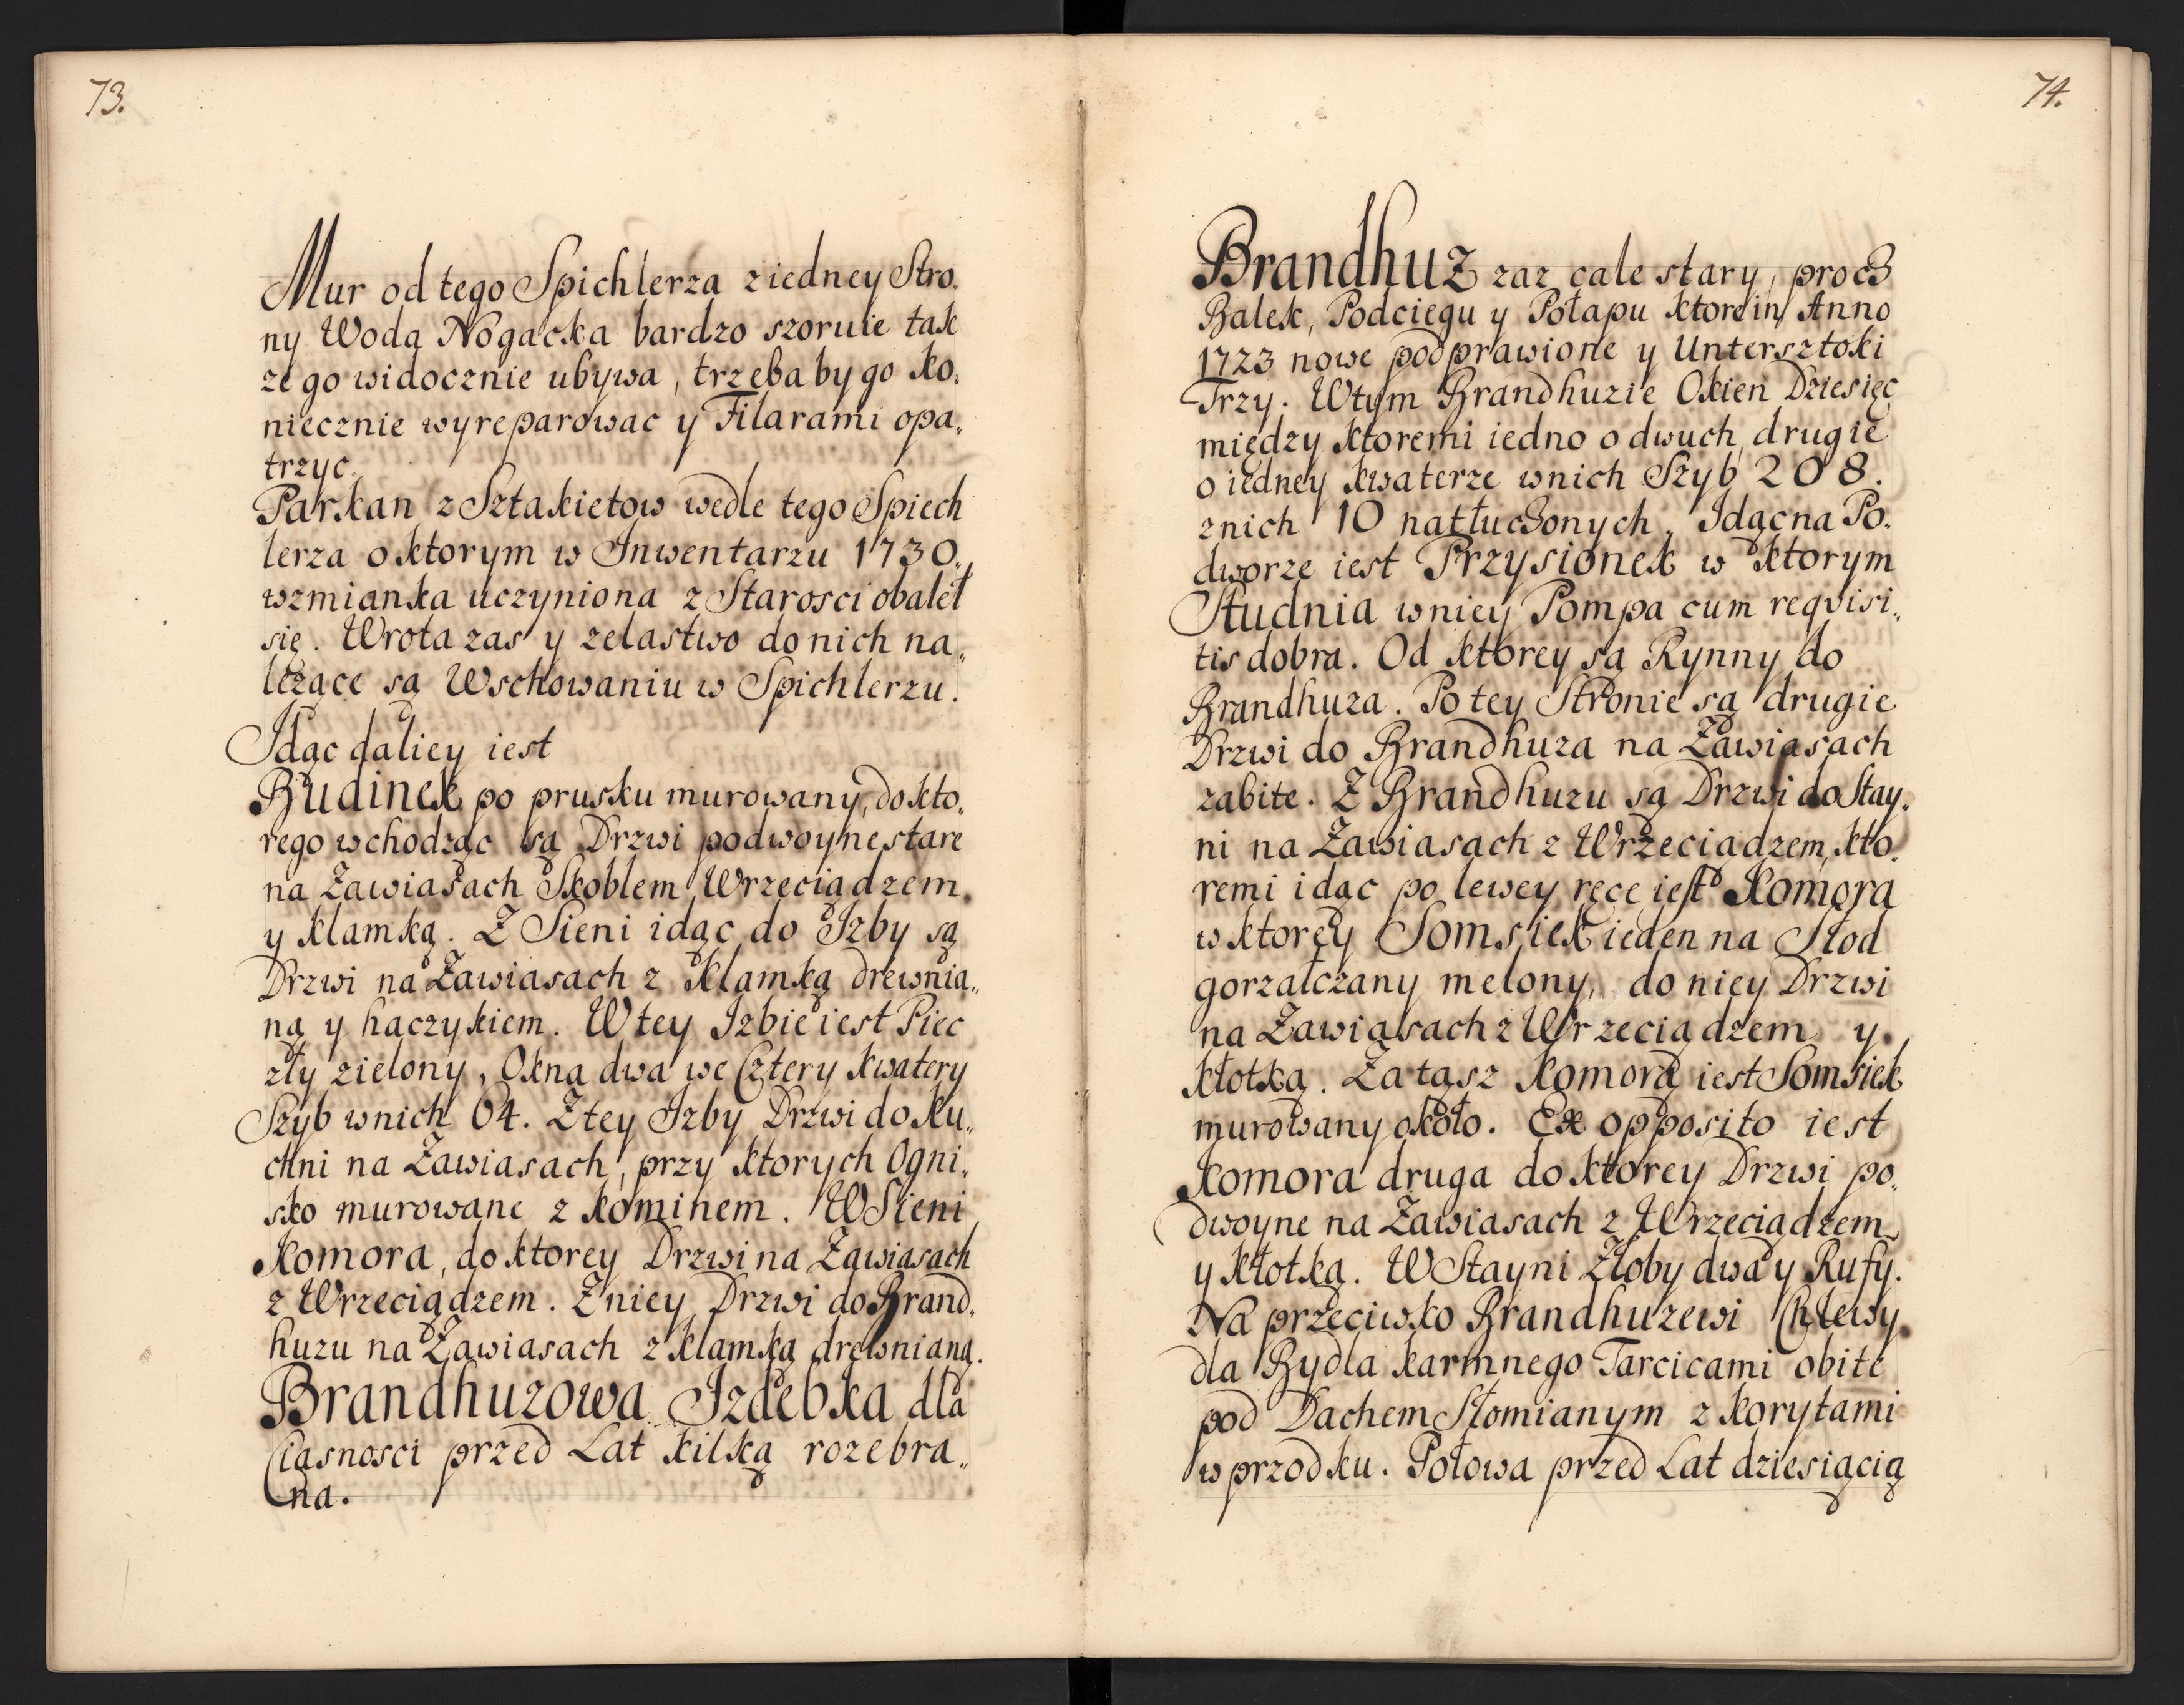 73.
Mur od tego Spichlerza z iedney Stro„
ny Woda Nogacka bardzo szoruie tak
ze go widocznie ubywa, trzeba by go ko„
niecznie wyreparowac y Filarami opa„
trzyc.
Parkan z Sztakietow wedle tego Spiech
lerza o ktorym w Inwentarzu 1730.
wzmianka uczyniona z Starosci obaleł
się. Wrota zas y zelastwo do nich na„
leżące są W schowaniu w Spichlerzu.
Idąc daliey iest
Budinek po prusku murowany, do kto„
rego wchodząc są Drzwi podwoyne stare
na Zawiasach Skoblem Wrzeciądzem
y klamką. Z Sieni idąc do Izby są
Drzwi na Zawiasach z klamką drewnia„
ną y haczykiem. W tey Izbie iest Piec
zły zielony, Okna dwa we Cztery kwatery
Szyb w nich 64. Z tey Izby Drzwi do Ku„
chni na Zawiasach, przy ktorych Ogni„
sko murowane z kominem. W Sieni
Komora, do ktorey Drzwi na Zawiasach
z Wrzeciądzem. Z niey Drzwi do Brand„
huzu na Zawiasach z klamką drewnianą.
Brandhuzowa Izdebka dla
Ciasnosci przed Lat kilką rozebra„
na.
74.
Brandhuz zaz cale stary, procz
Balek, Podciegu y Połapu ktore in Anno
1723 nowe podprawione y Untersztoki
Trzy. W tym Brandhuzie Okien Dziesięc
między ktoremi iedno o dwuch, drugie
o iedney kwaterze w nich Szyb 208.
z nich 10 natłuczonych. Idąc na Po„
dworze iest Przysionek w ktorym
Studnia w niey Pompa cum reqvisi„
tis dobra. Od ktorey są Rynny do
Brandhuza. Po tey Stronie są drugie
Drzwi do Brandhuza na Zawiasach
zabite. Z Brandhuzu są Drzwi do Stay„
ni na Zawiasach z Wrzeciądzem, kto„
remi idąc po lewey ręce iest Komora
w ktorey Somsiek ieden na Słod
gorzałczany melony, do niey Drzwi
na Zawiasach z Wrzeciądzem y
kłotką. Za tąsz Komorą iest Somsiek
murowany około. Ex opposito iest
Komora druga do ktorey Drzwi po„
dwoyne na Zawiasach z Wrzeciądzem
y kłotką. W Stayni Złoby dwa y Rufy.
Na przeciwko Brandhuzewi Chlewy
dla Bydla karmnego Tarcicami obite
pod Dachem Słomianym z korytami
w przodku. Połowa przed Lat dziesiącią